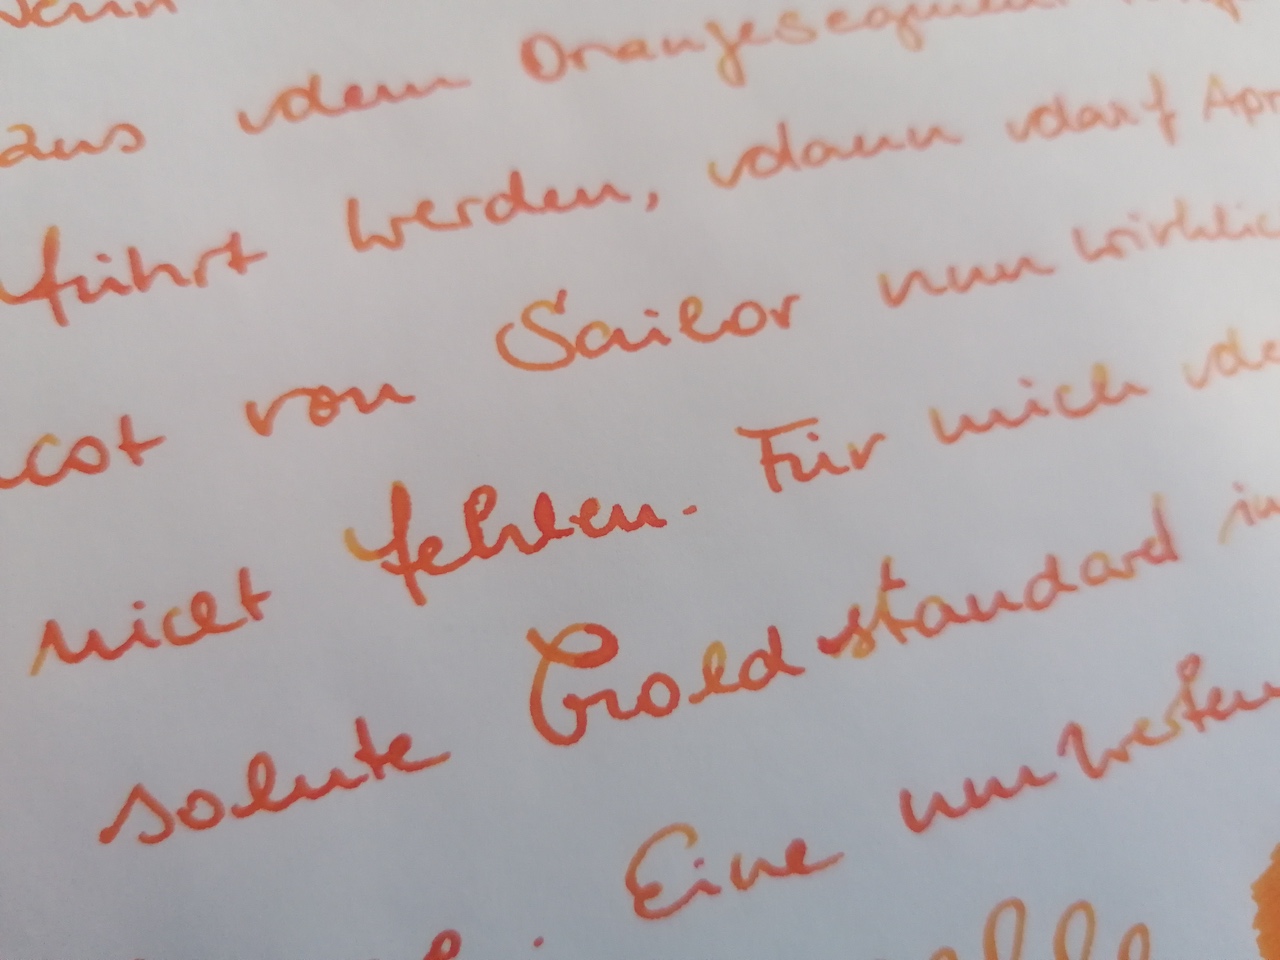 aus dem Orangesegment
führt werden, dann darf Apri
cot von Sailor nun wirklic
nicht fehlen. Für mich de
solute Goldstandard in
Eine umwerfen